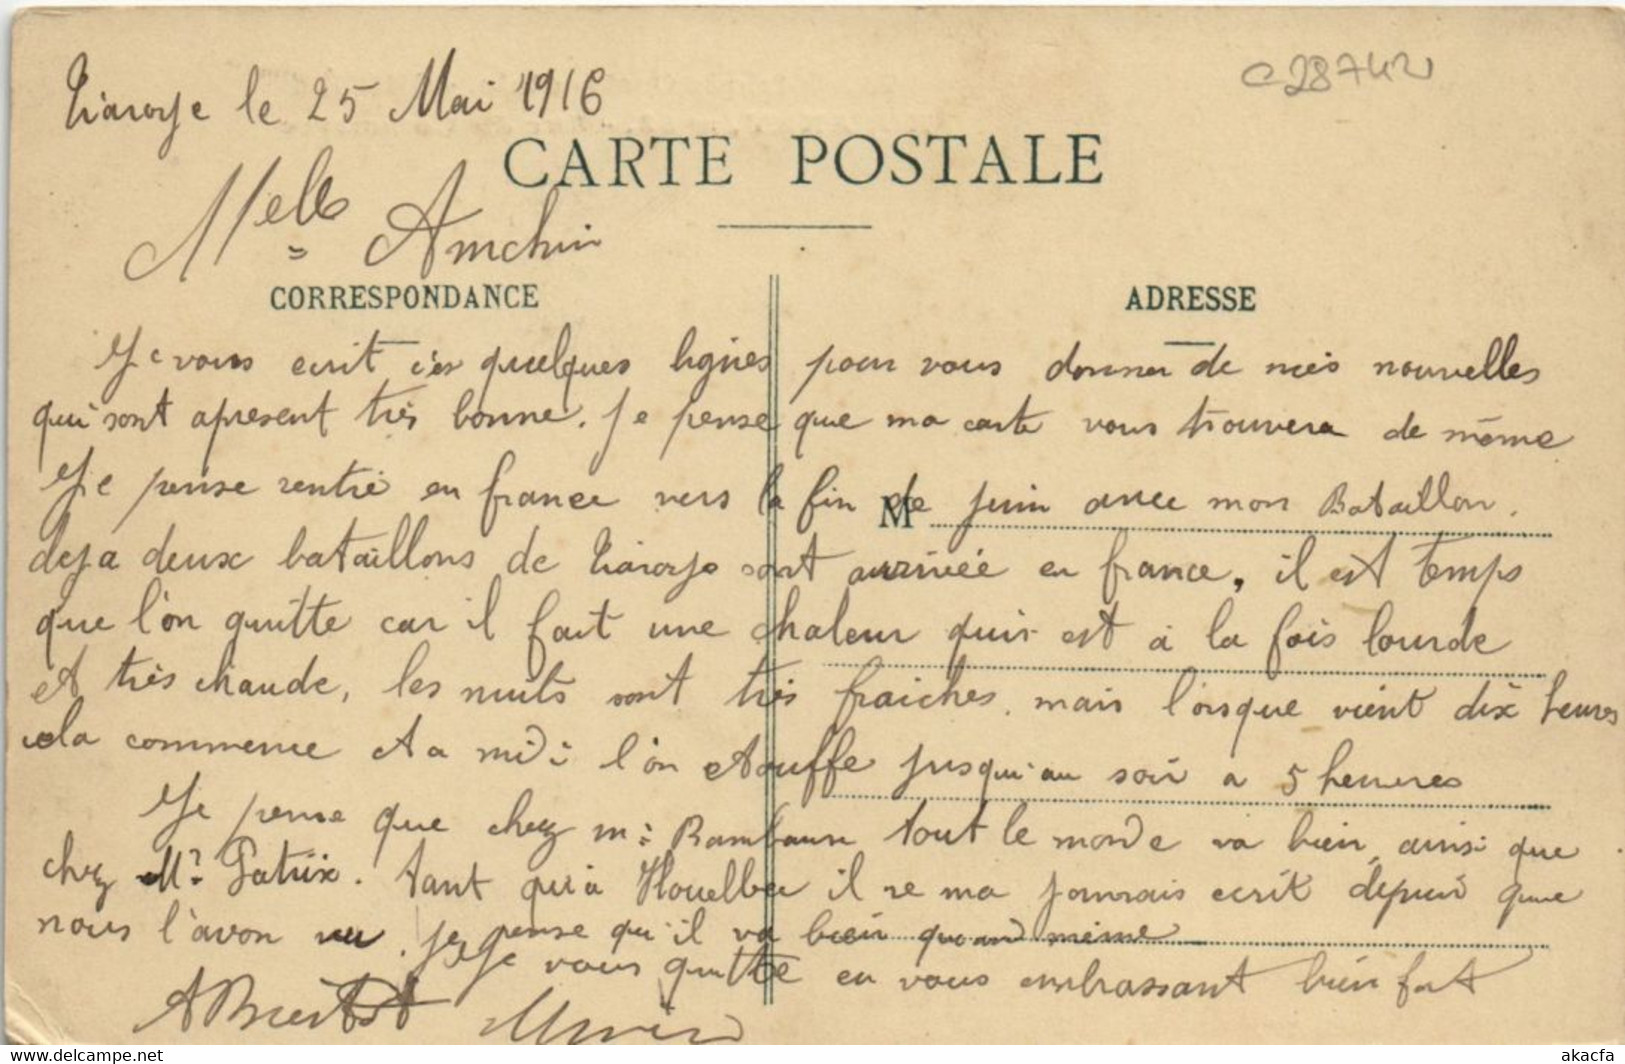 Tiaroye le 25 Mai 1916
C28742
CARTE POSTALE
Melle Amchin
CORRESPONDANCE
ADRESSE
Je vous ecrit ces quelques lignes pour vous donner de mes nouvelles
qui sont apresent très bonne. Je pense que ma carte vous trouvera de même
Je pense rentré en france vers la fin de juin avec mon Bataillon.
M
deja deux bataillons de Tiaroye sont arrivée en france, il est temps
que l'on quitte car il fait une chaleur qui est à la fois lourde
et très chaude, les nuits sont très fraiches, mais lorsque vient dix heures
cela commence et a midi l'on etouffe jusqu'au soir a 5 heures
Je pense que chez mr tout le monde va bien, ainsi que
chez Mr Patrix. tant qu'à il ne ma jamais ecrit depuis que
nous l'avon vu. je pense qu'il va bien quand même
Je vous quitte en vous embrassant bien fort
akacfa
delcampe.net